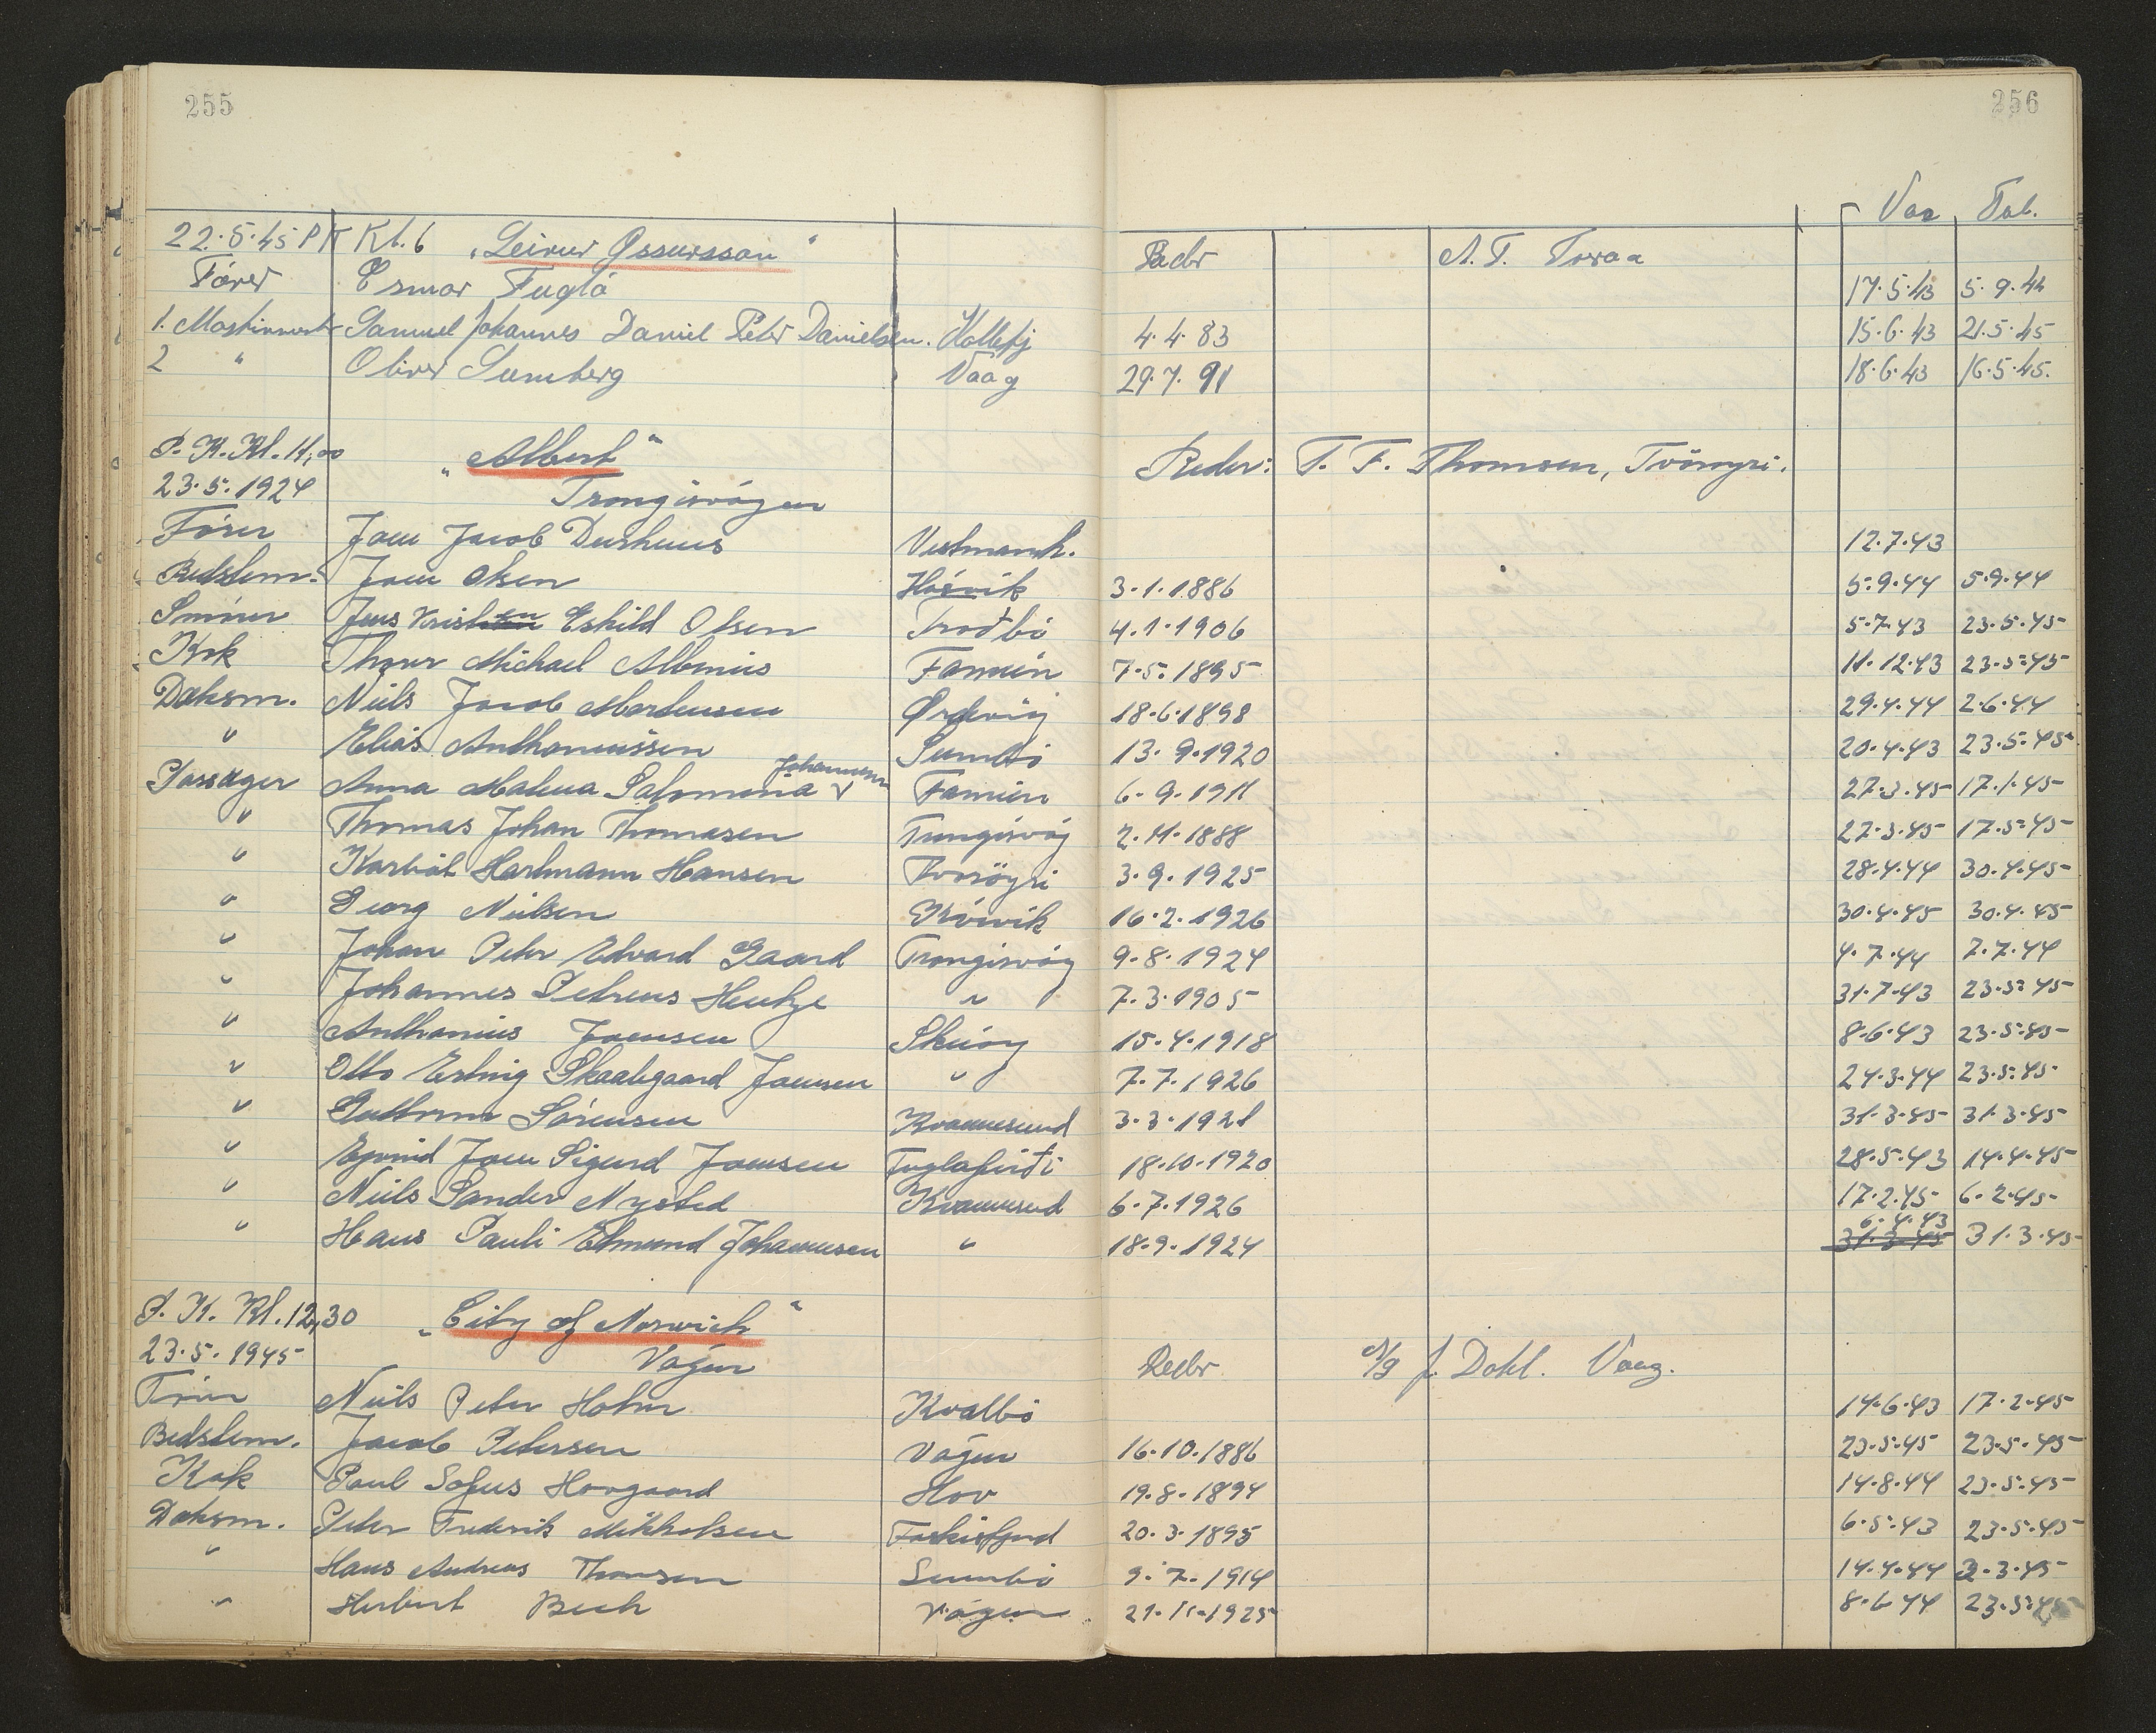 255 256
Vac Tub.
22.5.45 PK Kl. 6 „Leivur Øssursson" Reder A. T.
Fører Esmar Fuglø 17.5.43 5.9.44
1. Maskinmest Samuel Johannes Daniel Peter Danielsen. Kollefj 4.4.83 15.6.43 21.5.45
2 " Oliver Sumberg Vaag 29.7.91 18.6.43 16.5.45.
P. K. Kl. 11,00 „Albert" Reder: T. F. Thomsen, Tvöroyri.
23.5.1924 Trongisvágur
Fører Joen Jacob Durhuus Vestmanh. 12.7.43
Bedstem. Joen Olsen Hósvik 3.1.1886 5.9.44 5.9.44
Smører Jens Kristen Eskild Olsen Froðbö 4.1.1906 5.7.43 23.5.45
Kok Thomas Michael Albinus Famien 7.5.1895 11.12.43 23.5.45
Daksm. Niels Jacob Mortensen Ørdevig 18.6.1898 29.4.44 2.6.44
" Elias Anthoniussen Sumbö 13.9.1920 20.4.43 23.5.45
Passager Anna Malena Salomina Johannesen Famien 6.9.1911 27.3.45 17.1.45
" Thomas Johan Thomasen Trongisvág 2.11.1888 27.3.45 17.5.45
" Karböl Hartmann Hansen Tvöröyri 3.9.1925 28.4.44 30.4.45
" Georg Nielsen 16.2.1926 30.4.45 30.4.45
" Johan Peter Edvard Gaard Trongisvág 9.8.1924 4.7.44 7.7.44
" Johannes Petreus Hentze " 7.3.1905 31.7.43 23.5.45
" Anthonius Joensen Skúoy 15.4.1918 8.6.43 23.5.45
" Otto Erling Skaalegaard Joensen " 7.7.1926 24.3.44 23.5.45
" Guttorm Sørensen Kvannesund 3.3.1921 31.3.45 31.3.45
" Ejvind Joen Sigurd Joensen Fuglafirði 18.10.1920 28.5.43 14.4.45
" Niels Sander Nysted Kvannesund 6.7.1926 17.2.45 6.2.45
6.4.43
" Hans Pauli Edmund Johannesen " 18.9.1924 31.3.45 31.3.45
P. K. Kl. 12,30 „City of Norwich"
23.5.1945 Vágur Reder A/S J. Dahl. Vaag.
Fører Niels Peter Holm Kvalbö 14.6.43 17.2.45
Bedstem. Jacob Petersen Vágur 16.10.1886 23.5.45 23.5.45
Kok Paul Sofus Hovgaard Hov 19.8.1894 14.8.44 23.5.45
Daksm. Peter Frederik Mikkelsen 20.3.1895 6.5.43 23.5.45
" Hans Andreas Thomsen Sumbö 9.7.1914 14.4.44 2.3.45
" Herbert Bech Vágur 21.11.1925 8.6.44 23.5.45